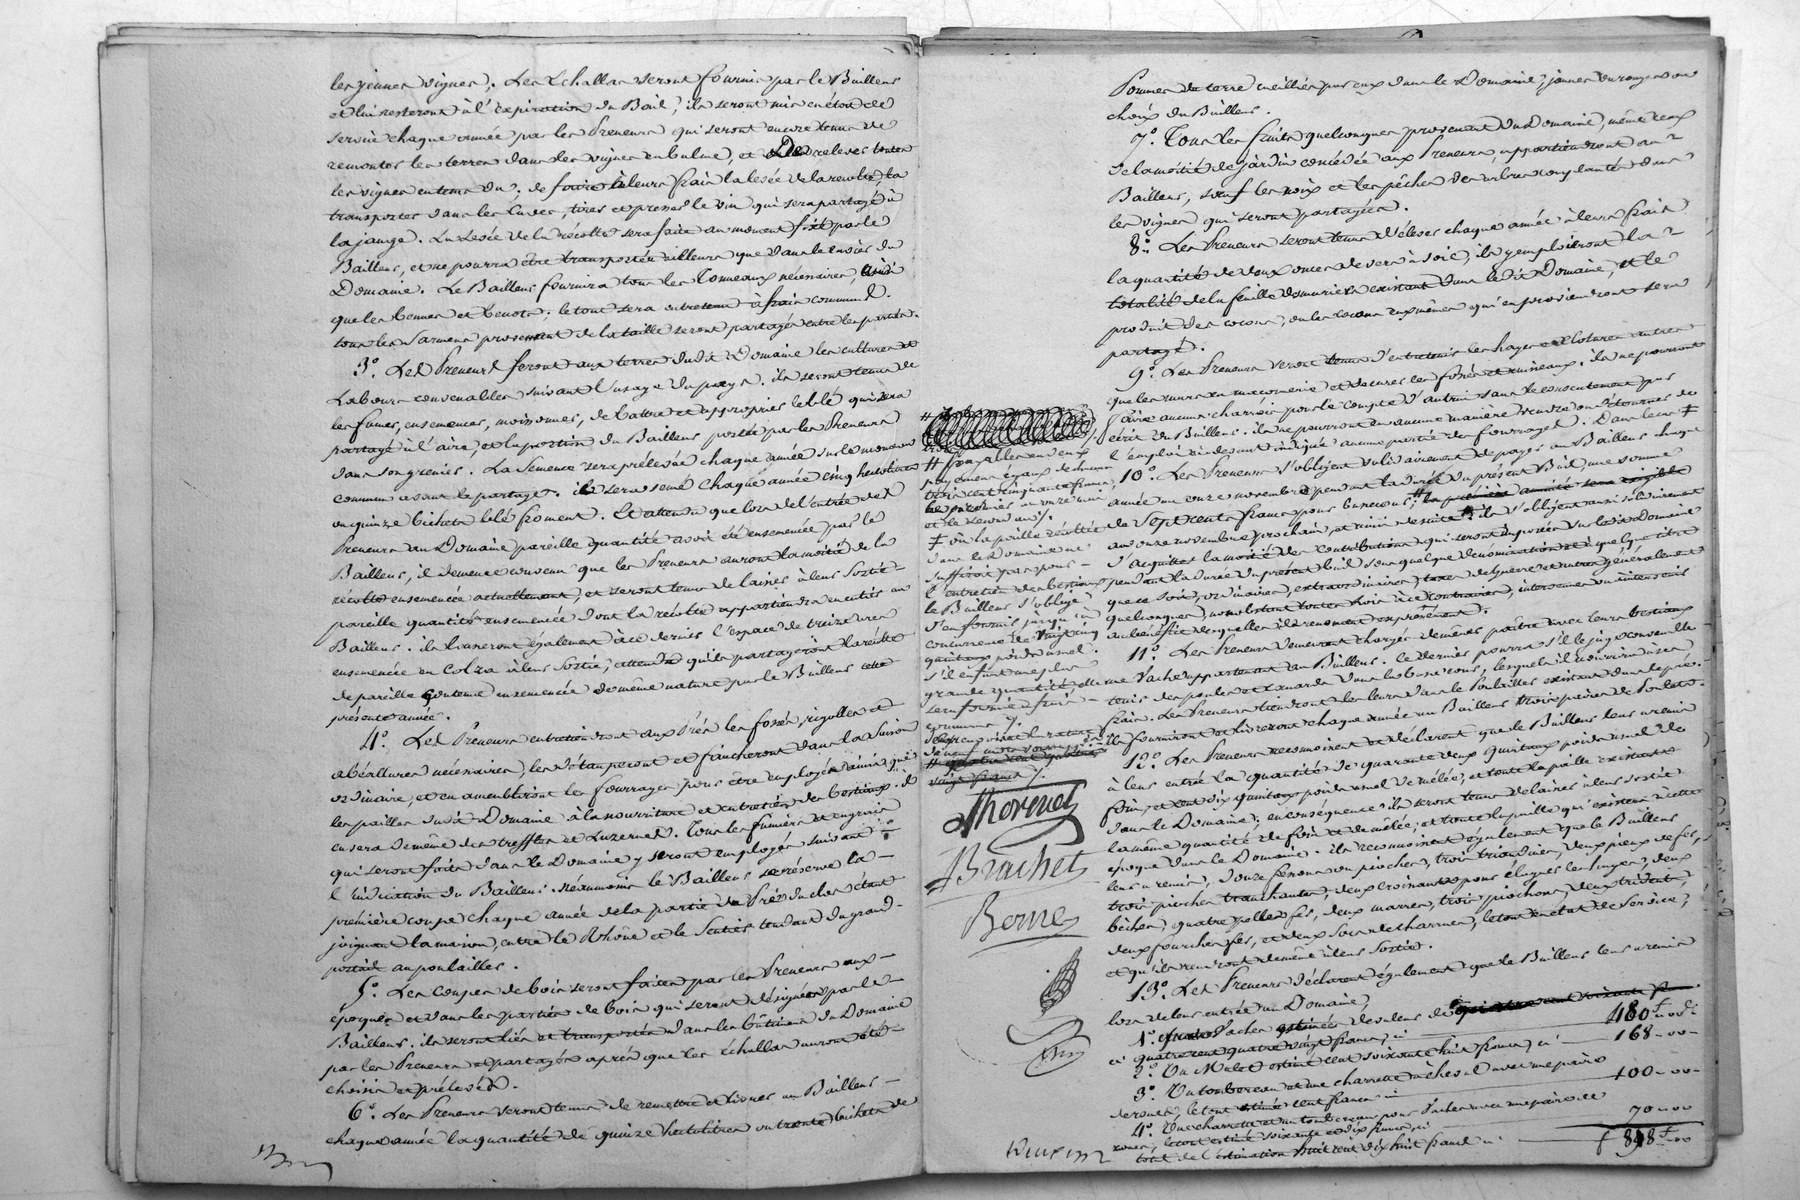 les jeunes vignes. Les Echallas seront fournis par le Bailleur
et lui resteront à l'expiration du Bail; ils seront mis en état de
service chaque année par les Preneurs qui seront encore tenus de
remonter les terres dans les vignes en balme, et de relever toutes
les vignes en tems du; de faire à leurs frais la levée de la recolte, la
transporter dans les Cuves, tirer et presser le vin qui sera partagé à
la jauge. La levée de la récolte sera faite au moment fixé par le
Bailleur, et ne pourra être transportée ailleurs que dans le cuvier du
Domaine. Le Bailleur fournira tous les Tonneaux nécessaires, ainsi
que les bennes et benots; le tout sera entretenu à frais communs.
tous les Sarmens provenant de la taille seront partagés entre les parties.
3.º Les Preneurs feront aux terres dudit Domaine les cultures et
Labours convenables suivant l'usage du pays. ils seront tenus de
les fumer, ensemencer, moissonner, de battre et approprier le blé qui sera
partagé à l'aire, et la portion du Bailleur portée par les Preneurs
dans son grenier. La Semence sera prélevée chaque année sur le monceau
commun avant le partage. il sera semé chaque année cinq hectolitres
ou quinze bichets blé froment. Et attendu que lors de l'entrée des
Preneurs au Domaine pareille quantité avoit été ensemencée par le
Bailleur, il demeure convenu que les Preneurs auront la moitié de la
récolte ensemencée actuellement, et seront tenus de laisser à leur Sortie
pareille quantité ensemencée dont la récolte appartiendra en entier au
Bailleur. ils laisseront également à ce dernier l'espace de treize ares
ensemencée en Colza à leur Sortie, attendu qu'ils partageront la récolte
de pareille contenue ensemencée de même nature par le Bailleur cette
présente année.
4.º Les Preneurs entretiendront aux Prés les fossés, rigolles et
abéallures nécessaires, les étaupperont et faucheront dans la Saison
ordinaire, et en ameubliront les fourrages pour être employés ainsi que
les pailles dudit Domaine à la nourriture et entretien des bestiaux. il
en sera de même des treffles et Luzernes. Tous les fumiers et engrais
qui seront faits dans le Domaine y seront employés suivant
l'indication du Bailleur. néanmoins le Bailleur se réserve la
première coupe chaque année de la partie du Pré du clos étant
joignant la maison, entre le Rhône et le Sentier tendant du grand
portail au poulailler.
5.º Les coupes de bois seront faites par les Preneurs aux
époques et dans les parties de bois qui seront désignées par le
Bailleur. ils seront liés et transportés dans les bâtimens du Domaine
par les Preneurs et partagés après que les échallas auront été
choisis et prélevés.
6.º Les Preneurs seront tenus de remettre et livrer au Bailleur
chaque année la quantité de quinze hectolitres ou trente bichets de
Pommes de terre cueillies par eux dans le Domaine, jaunes ou rouges au
choix du Bailleur.
7.º Tous les fruits quelconques provenant du Domaine, même ceux
de la moitié de jardin concédée aux Preneurs, appartiendront au
Bailleur, sauf les noix et les pêches des arbres complantés dans
les vignes qui seront partagées.
8.º Les Preneurs seront tenus d'élever chaque année à leurs frais
la quantité de deux onces de vers à soie; ils y emploieront la
totalité de la feuille des muriers existant dans ledit Domaine, et le
produit des cocons, ou les cocons euxmêmes qui en proviendront sera
partagé.
9.º Les Preneurs seront tenus d'entretenir les hayes et clotures autres
que les murs en maconnerie et de curer les fossés et ruisseaux. ils ne pourront
faire aucuns charrois pour le compte d'autrui sans le consentement par
écrit du Bailleur. ils ne pourront en aucune manière vendre ou détourner de
l'emploi ci-dessus indiqué aucune partie des fourrages. Dans le cas ‡
10.º Les Preneurs s'obligent solidairement de payer au Bailleur chaque
année au onze novembre pendant la durée du présent Bail une somme
de Sept cents francs pour basse cour; # la première année sera exigible
au onze novembre prochain et ainsi de suite. ils s'obligent aussi solidairement
d'acquitter la moitié des contributions qui seront imposées sur ledit Domaine
pendant la durée du présent bail sous quelque dénomination et à quelque titre
que ce soit, ordinaires, extraordinaires, taxes de guerre et autres généralement
quelconques, nonobstant toutes lois à ce contraires, intervenues ou à intervenir
au bénéfice desquelles ils renoncent expressément.
11.º Les Preneurs demeurent chargés de mener paître avec leurs bestiaux
une vache appartenant au Bailleur. Ce dernier pourra s'il le juge convenable
tenir des poules et canards dans la basse cour, lesquels il nourrira à ses
frais. Les Preneurs tiendront les leurs dans le Poulailler existant dans le pré.
Ils fourniront et livreront chaque année au Bailleur trois paires de Poulets.
12.º Les Preneurs reconnoissent et déclarent que le Bailleur leur a remis
à leur entrée la quantité de quarante deux quintaux poids usuel de
foin, et cent dix quintaux poids usuel de mêlée, et toute la paille existante
dans le Domaine; en conséquence ils seront tenus de laisser à leur sortie
la même quantité de foin et de mêlée, et toute la paille qui existera à cette
époque dans le Domaine. ils reconnoissent également que le Bailleur
leur a remis, douze fessous ou pioches, trois triandines, deux pieux de fer,
trois pioches tranchantes, deux croissants pour élaguer les hayes, deux
bêches, quatre pelles fer, deux marres, trois piochons, deux tridents,
deux fourches fer, et deux Socs de charrues, le tout en état de Service,
et qu'ils rendront de même à leur Sortie.
13.º Les Preneurs déclarent également que le Bailleur leur a remis
lors de leur entrée au Domaine,
1.º quatre vaches estimées de valeur de
ci quatre cent quatre vingt francs, ci — 480 f „ 00 c
2.º Un Mulet estimé cent soixante huit francs, ci — 168 „ 00
3.º Un tombereau et une charrette à cheval avec une paire
de roues, le tout estimé cent francs ci — 100 „ 00
4.º Une charrette et un tombereau pour vaches avec une paire de
roues, le tout estimé soixante et dix francs, ci — 70 „ 00
total de l'estimation huit cent dix huit francs ci — f 818 f „ 00
# payables en deux
payemens égaux de chacun
trois cent cinquante francs,
le premier au onze mai
et le second au
‡ où la paille récoltée
dans le Domaine ne
suffiroit pas pour
l'entretien des bestiaux
le Bailleur s'oblige
d'en fournir jusqu'à
concurrence de vingt cinq
quintaux poids usuel.
s'il en faut une plus
grande quantité elle
sera fournie à frais
communs
Thorenet
Brachet
Borne